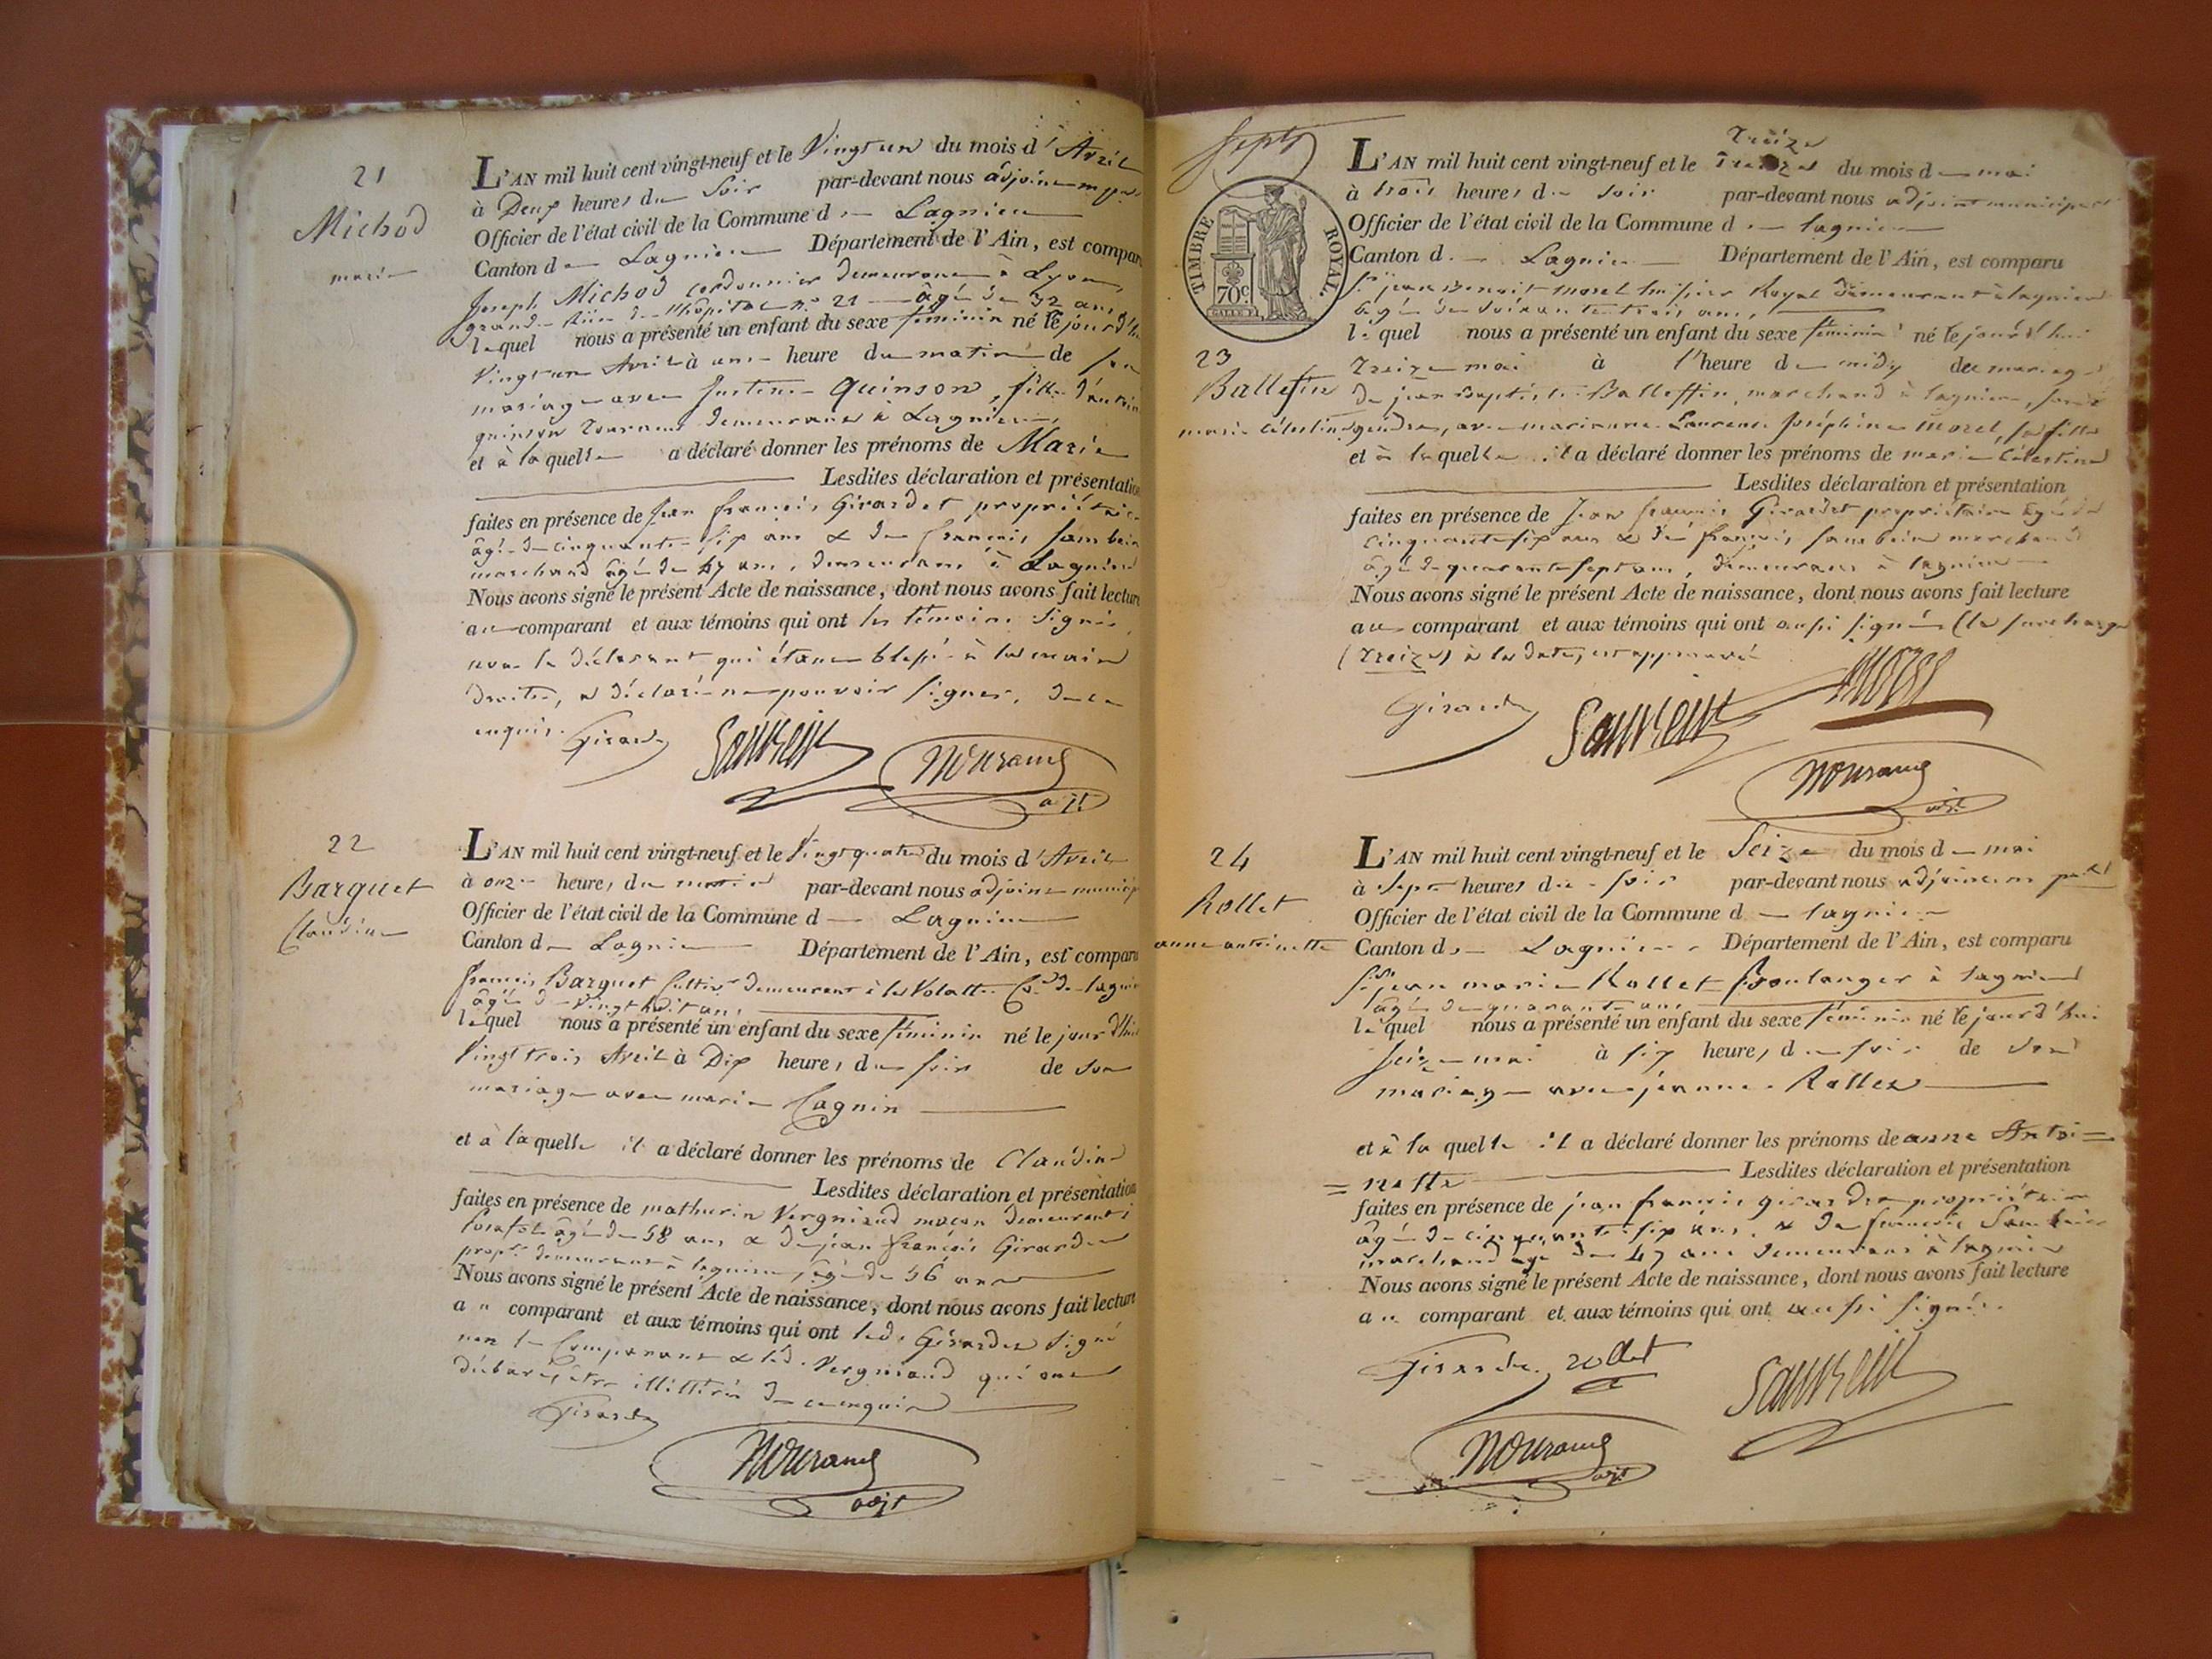 21
Michod
marie
L'AN mil huit cent vingt-neuf et le Vingt un du mois d'Avril
à Deux heures du Soir par-devant nous adjoint
Officier de l'état civil de la Commune de Lagnieu
Canton de Lagnieu Département de l'Ain, est comparu
Joseph Michod cordonnier demeurant à Lyon,
grande Rue de l'hôpital n.° 21 âgé de 32 ans,
lequel nous a présenté un enfant du sexe féminin né le jour d'hui
Vingt un Avril à une heure du matin de son
mariage avec Justine Quinson, fille d'antoine
quinson tourneur demeurant à Lagnieu,
et à laquelle a déclaré donner les prénoms de Marie
Lesdites déclaration et présentation
faites en présence de Jean françois Girardet propriétaire
âgé de cinquante-six ans & de françois
marchand âgé de 47 ans, demeurans à Lagnieu
Nous avons signé le présent Acte de naissance, dont nous avons fait lecture
au comparant et aux témoins qui ont les témoins signé,
non le déclarant qui étant blessé à la main
droite, a déclaré ne pouvoir signer, de ce
enquis.
22
Barquet
Claudine
L'AN mil huit cent vingt-neuf et le Vingt quatre du mois d'Avril
à onze heures du matin par-devant nous adjoint municip
Officier de l'état civil de la Commune de Lagnieu
Canton de Lagnieu Département de l'Ain, est comparu
françois Barquet Cultivr demeurant à la Volatte Cne de lagnieu
âgé de Vingt huit ans,
lequel nous a présenté un enfant du sexe féminin né le jour d'hier
Vingt trois Avril à Dix heures du soir de son
mariage avec marie Cagnin
et à laquelle il a déclaré donner les prénoms de Claudine
Lesdites déclaration et présentation
faites en présence de mathurin Vergniaud maçon demeurant à
âgé de 58 ans & de jean françois Girardet
propre demeurant à lagnieu, âgé de 56 ans
Nous avons signé le présent Acte de naissance, dont nous avons fait lecture
a " comparant et aux témoins qui ont led. Girardet signé
non le Comparant & led. Vergniaud qui ont
déclaré être illittérés de ce enquis
L'AN mil huit cent vingt-neuf et le Treize treize du mois de mai
à trois heures du soir par-devant nous adjoint municipal
Officier de l'état civil de la Commune de lagnieu
Canton de Lagnieu Département de l'Ain, est comparu
TIMBRE ROYAL.
70c
Sr jean Benoit Morel huissier Royal demeurant à lagnieu
âgé de soixante trois ans,
lequel nous a présenté un enfant du sexe féminin né le jour d'hui
23
Balleffin
marie célestine
treize mai à l'heure de midy du mariage
de jean Baptiste Balleffin, marchand à lagnieu, son
gendre, avec marianne Laurence Joséphine Morel, sa fille
et à laquelle il a déclaré donner les prénoms de marie Célestine
Lesdites déclaration et présentation
faites en présence de Jean françois Girardet propriétaire âgé de
cinquante six ans & de françois marchand
âgé de quarante sept ans, demeurans à lagnieu
Nous avons signé le présent Acte de naissance, dont nous avons fait lecture
au comparant et aux témoins qui ont aussi signé (la surcharge
(treize) à la date, est approuvée
Morel
24
Rollet
anne antoinette
L'AN mil huit cent vingt-neuf et le Seize du mois de mai
à Sept heures du soir par-devant nous adjoint
Officier de l'état civil de la Commune de lagnieu
Canton de Lagnieu Département de l'Ain, est comparu
Sr jean marie Rollet Boulanger à lagnieu
âgé de quarante ans
lequel nous a présenté un enfant du sexe féminin né le jour d'hui
seize mai à six heures du soir de son
mariage avec jeanne Rollet
et à laquelle il a déclaré donner les prénoms de anne Antoi=
=nette Lesdites déclaration et présentation
faites en présence de jean françois girardet propriétaire
âgé de cinquante six ans & de françois
marchand âgé de 47 ans demeurans à lagnieu
Nous avons signé le présent Acte de naissance, dont nous avons fait lecture
a " comparant et aux témoins qui ont aussi signé.
rollet